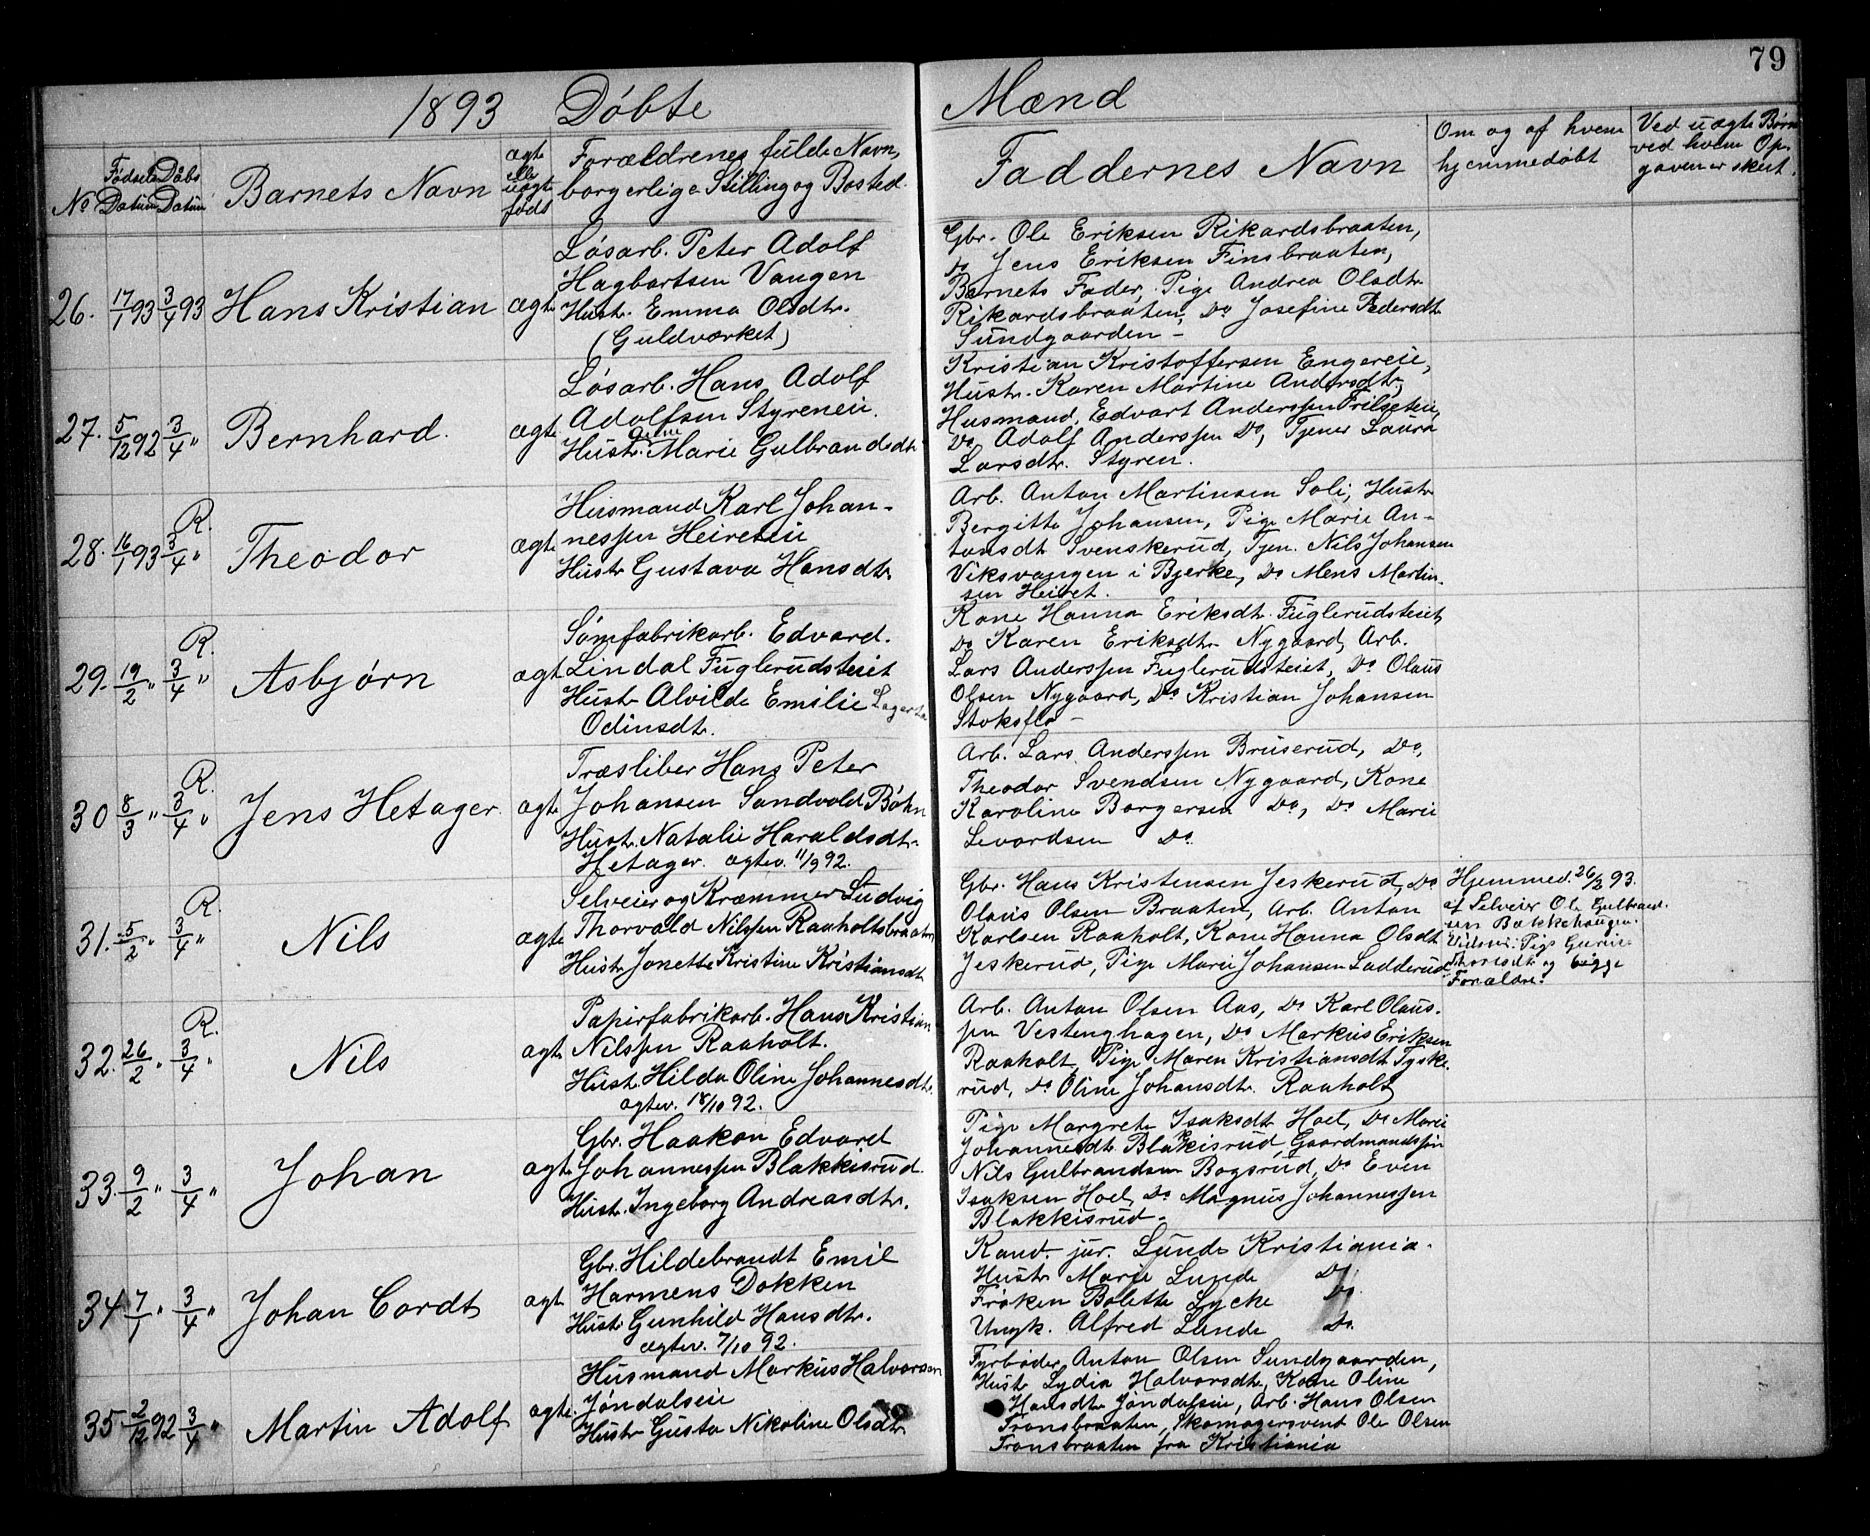 79
1893 Døbte Mænd
No
Fødsels Datum
Daabs Datum
Barnets Navn
ægte ell. uægte født
Forældrenes fulde Navn,
borgerlige Stilling og Bosted.
Faddernes Navn
Om og af hvem
hjemmedøbt
Ved uægte Børn
ved hvem Op-
gaven er skeet.
26. 17/1 93 3/4 93 Hans Kristian ægte
Løsarb. Peter Adolf
Hagbartsen Vangen
Hustr. Emma Olsdtr.
(Guldværket)
Gbr. Ole Eriksen Rikardsbraaten,
Do Jens Eriksen Finsbraaten,
Barnets Fader, Pige Andrea Olsdtr.
Rikardsbraaten, Do Josefine Pedersdtr
Sundgaarden -
27. 5/12 92 3/4 " Bernhard. ægte
Løsarb. Hans Adolf
Adolfsen Styreneie.
Hustr. Marie Gulbrandsdtr
Kristian Kristoffersen Engereie,
Hustr. Karen Martine Andersdtr,
Husmand. Edvart Anderssen Trilseteie,
Do Adolf Anderssen Do, Tjener Laura
Larsdtr. Styren.
28. 16/1 93 R. 3/4 " Theodor ægte
Husmand Karl Johan-
nessen Heireteie
Hustr Gustava Hansdtr.
Arb. Anton Martinsen Soli, Hustr
Bergitte Johansen, Pige Marie An-
tonsdtr Svenskerud, Tjen. Nils Johansen
Viksvangen i Bjerke, Do Mens Martin-
sen Heiret.
29. 19/2 " R. 3/4 " Asbjørn ægt
Sømfabrikarb. Edvard.
Lindal Fuglerudsteiet
Hustr Alvilde Emilie Lagerta
Odinsdtr.
Kone Hanna Eriksdtr. Fuglerudsteiet,
Do Karen Eriksdtr Nygaard, Arb.
Lars Anderssen Fuglerudsteiet, Do Olaus
Olsen Nygaard, Do Kristian Johansen
Stoksflo -
30 8/3 " R. 3/4 " Jens Hetager. ægte
Træsliber Hans Peter
Johansen Sandvold Bøhn
Hustr. Natalie Haraldsdtr.
Hetager. ægtev. 11/9 92.
Arb. Lars Anderssen Bruserud, Do,
Theodor Svendsen Nygaard, Kone
Karoline Borgersen Do, Do Marie
Sevardsen Do.
31. 5/2 " R. 3/4 " Nils ægte
Selveier og Kræmmer Ludvig
Thorvald Nilssen Raaholtsbraaten
Hustr Jonette Kristine Kristiansdtr.
Gbr. Hans Kristensen Jeskerud, Do
Olaus Olsen Braaten, Arb. Anton
Karlsen Raaholt, Kone Hanna Olsdtr
Jeskerud, Pige Marie Johansen Ladderud
Hjemmed. 26/2 93.
af Selveier Ole Gulbrand-
sen Bakkehaugen.
Vidner: Pige Gunie
Thoresdtr og begge
Forældre.
32. 26/2 " R. 3/4 " Nils ægt
Papirfabrikarb. Hans Kristian
Nilssen Raaholt.
Hustr. Hilda Oline Johannesdtr.
ægtev. 18/10 92.
Arb. Anton Olsen Aas, Do Karl Olaus-
sen Vestenghagen, Do Markus Eriksen
Raaholt, Pige Maren Kristiansdtr Tyske-
rud, Do Oline Johansdtr. Raaholt
33. 9/2 " 3/4 " Johan ægt
Gbr. Haakon Edvard
Johannessen Blakkisrud.
Hustr. Ingeborg Andreasdtr.
Pige Margrete Isaksdtr Hoel, Do Marie
Johannesdtr Blakkisrud, Gaardmandssøn
Nils Gulbrandsen Bogsrud, Do Even
Isaksen Hoel, Do Magnus Johannessen
Blakkisrud -
34 7/1 " 3/4 " Johan Cordt ægt
Gbr. Hildebrandt Emil
Harmens Dokken
Hustr Gunhild Hansdtr.
ægtev. 7/10 92.
Kand. jur. Lunde Kristiania.
Hustr Marie Lunde Do.
Frøken Bolette Lycke Do.
Ungk. Alfred Lunde Do.
35 2/12 92 3/4 " Martin Adolf ægte.
Husmand Markus Halvorsen
Jøndalseie
Hustr Gusta Nikoline Olsdtr.
Fyrbøder Anton Olsen Sundgaarden,
Hustr Lydia Halvorsdtr, Kone Oline
Hansdtr Jøndalseie, Arb. Hans Olsen
Transbraaten, Skomagersvent Ole Olsen
Transbraaten fra Kristiania